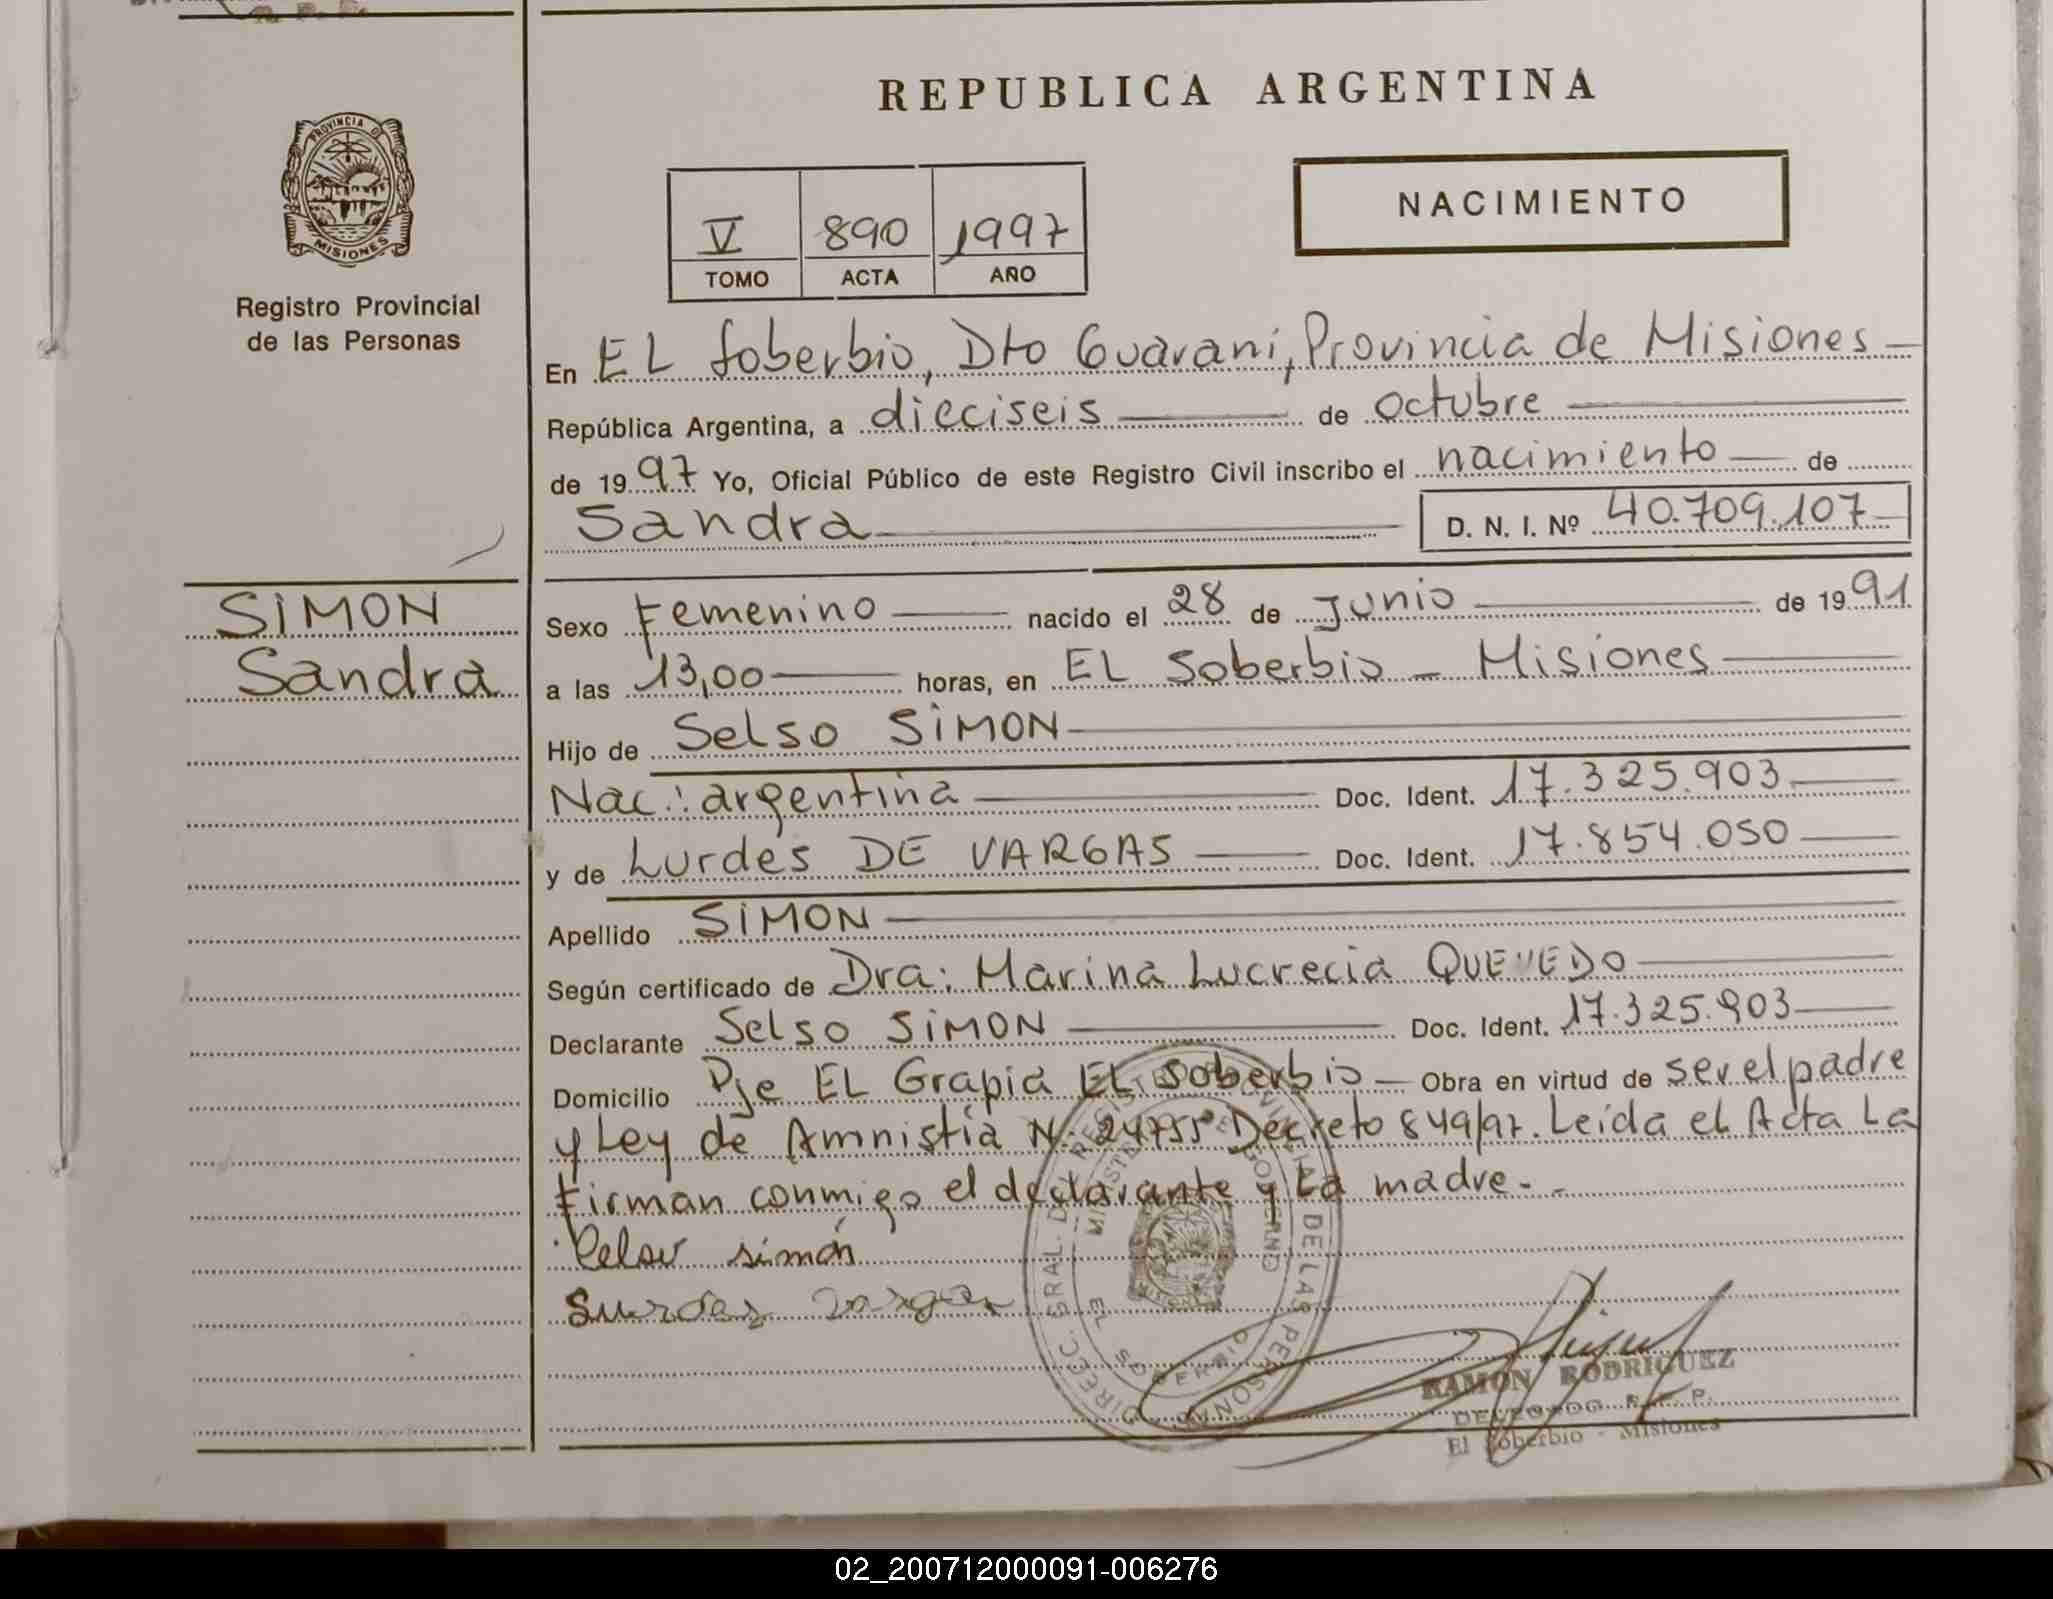 REPUBLICA ARGENTINA
PROVINCIA D
MISIONES
Registro Provincial
de las Personas
NACIMIENTO
V 890 1997
TOMO ACTA AÑO
En EL Soberbio, Dto Guarani, Provincia de Misiones
República Argentina, a dieciseis de octubre
de 1997 Yo, Oficial Público de este Registro Civil inscribo el nacimiento de
Sandra D. N. I. Nº 40.709.107
SIMON
Sandra
Sexo Femenino nacido el 28 de Junio de 1991
a las 13,00 horas, en EL Soberbio - Misiones
Hijo de Selso SIMON
Nac.: argentina Doc. Ident. 17.325.903
y de Lurdes DE VARGAS Doc. Ident. 17.854.050
Apellido SIMON
Según certificado de Dra: Marina Lucrecia QUEVEDO
Declarante Selso SIMON Doc. Ident. 17.325.903
Domicilio Pje EL Grapia EL Soberbio - Obra en virtud de ser el padre
y Ley de Amnistia N: 24755 Decreto 849/97. Leída el Acta La
Firman conmigo el declarante y La madre.-
Celso simón
Lurdes Vargas
DIREC. GRAL. DEL REGISTRO PROVINCIAL DE LAS PERSONAS
MINISTERIO DE GOBIERNO
EL SOBERBIO
MISIONES
RAMON RODRIGUEZ
DELEGADO R. P. P.
El Soberbio - Misiones
02_200712000091-006276